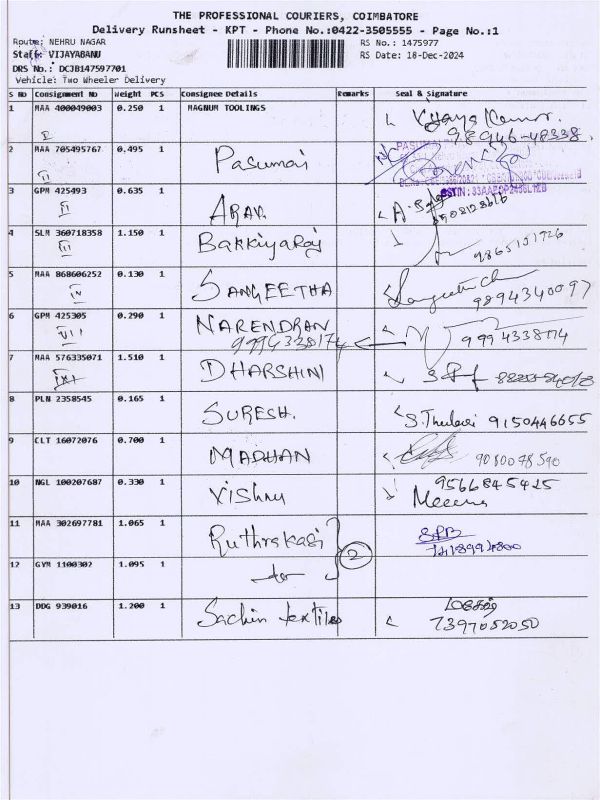 THE PROFESSIONAL COURIERS, COIMBATORE
Delivery Runsheet - KPT - Phone No.:0422-3505555 - Page No.:1
Route: NEHRU NAGAR RS No.: 1475977
Staff: VIJAYABANU RS Date: 18-Dec-2024
DRS No.: DCJB147597701
Vehicle: Two Wheeler Delivery
S No Consignment No Weight PCS Consignee Details Remarks Seal & Signature
1 MAA 400049003 0.250 1 MAGNUM TOOLINGS
I 98946-48338
2 MAA 705495767 0.495 1 Pasumai
II
3 GPM 425493 0.635 1 ARAV
4 SLM 360718358 1.150 1 Bakkiyaraj
III 9865151726
5 MAA 868606252 0.130 1 SANGEETHA
IV 9894340097
6 GPM 425305 0.290 1 NARENDRAN
VII 9994338174 9994338174
7 MAA 576335071 1.510 1 DHARSHINI
8 PLN 2358545 0.165 1 SURESH. 9150446655
9 CLT 16072076 0.700 1 MADHAN
10 NGL 100207687 0.330 1 Vishnu 9566845425
Meena
11 MAA 302697781 1.065 1 Ruthrakasi SPB
2
12 GYM 1100302 1.095 1
13 DDG 939016 1.200 1 Sachin textiles
7397052050